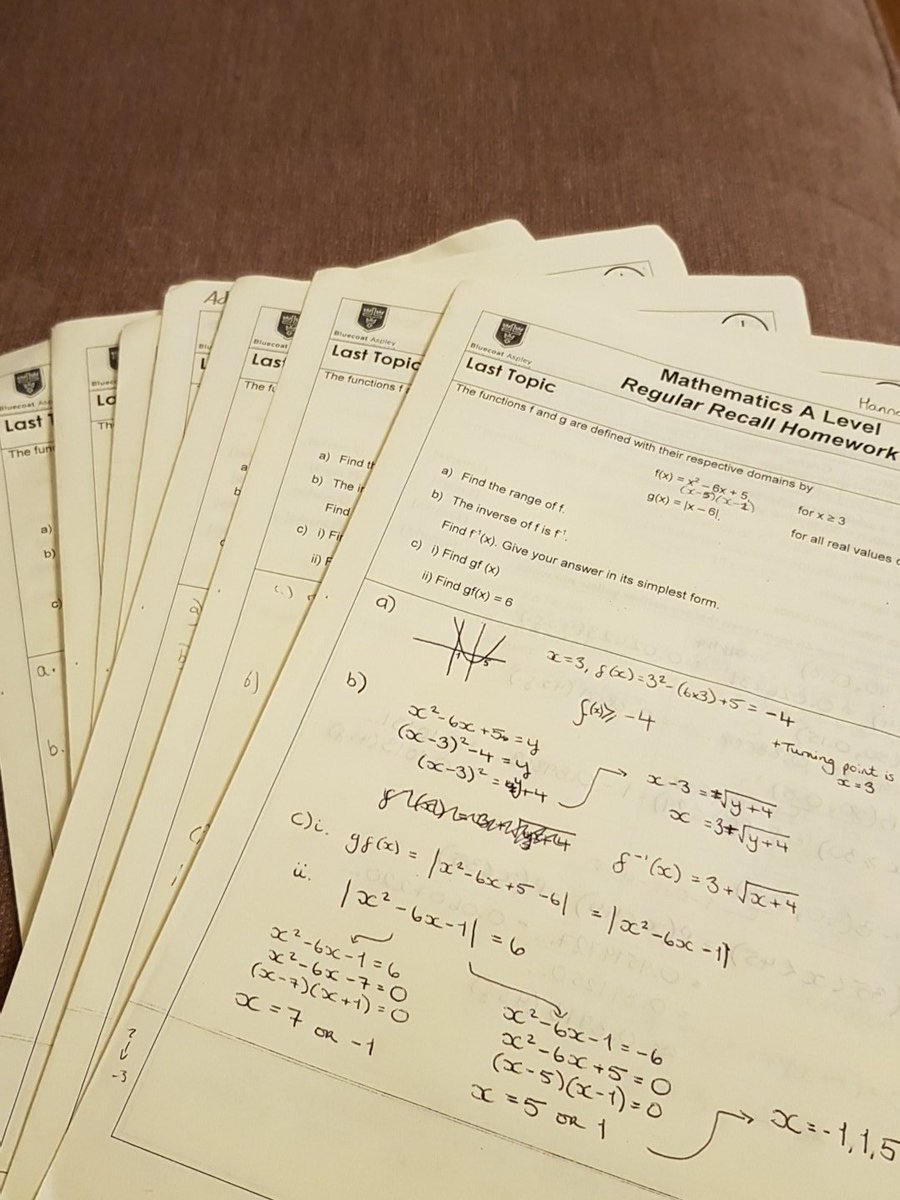 Bluecoat Aspley
Mathematics A Level
Last Topic
Regular Recall Homework
The functions f and g are defined with their respective domains by
f(x) = x² – 6x + 5,
for x ≥ 3
(x-5)(x-1)
g(x) = |x – 6|,
for all real values
a) Find the range of f.
b) The inverse of f is f⁻¹.
Find f⁻¹(x). Give your answer in its simplest form.
c) i) Find gf (x)
ii) Find gf(x) = 6
a)
x=3, f(x)=3²-(6x3)+5=-4
f(x)≥-4
+Turning point is
x=3
b)
x²-6x+5=y
(x-3)²-4=y
(x-3)²=y+4
x-3=±√y+4
x=3±√y+4
f⁻¹(x)=3+√x+4
c)i.
gf(x)=|x²-6x+5-6|=|x²-6x-1|
ii.
|x²-6x-1|=6
x²-6x-1=6
x²-6x-7=0
(x-7)(x+1)=0
x=7 or -1
x²-6x-1=-6
x²-6x+5=0
(x-5)(x-1)=0
x=5 or 1
x=-1,1,5
?
-3
Bluecoat Aspley
Last Topic
The functions f
a) Find
b) The
Find
c) i)
ii)
b)
Last
a
b
Last
The fun
a)
b)
c)
a.
b.